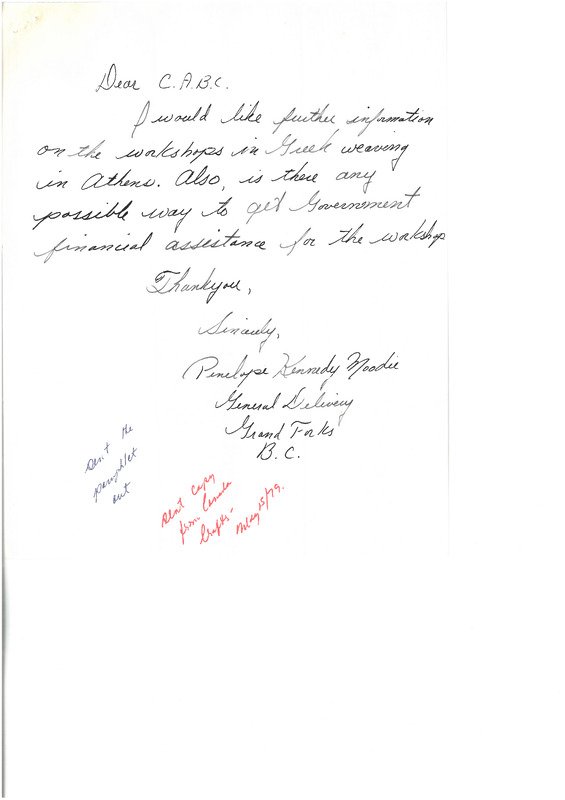 Dear C.A.B.C.
I would like further information
on the workshops in Greek weaving
in Athens. Also, is there any
possible way to get Government
financial assistance for the workshop
Thankyou,
Sincerely,
Penelope Kennedy Moodie
General Delivery
Grand Forks
B.C.
Sent the
pamphlet
out
Sent copy
from Canada
Crafts-
May 15/79.